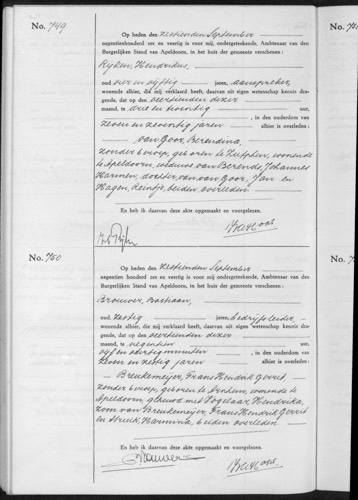 No. 749
Op heden den zestienden September
negentienhonderd zes en veertig is voor mij, ondergeteekende, Ambtenaar van den
Burgerlijken Stand van Apeldoorn, in het huis der gemeente verschenen:
Rijken, Hendrikus,
oud vier en vijftig jaren, aanspreker,
wonende alhier, die mij verklaard heeft, daarvan uit eigen wetenschap kennis dra-
gende, dat op den veertienden dezer
maand, te drie en twintig uur,
, in den ouderdom van
zeven en zeventig jaren alhier is overleden:
van Goor, Berendina,
zonder beroep, geboren te Zutphen, wonende
te Apeldoorn, weduwe van Berends, Johannes
Harmen, dochter van van Goor, Jan en
Hagen, Reintje, beiden overleden
En heb ik daarvan deze akte opgemaakt en voorgelezen.
No. 750
Op heden den zestienden September
negentien honderd zes en veertig is voor mij, ondergeteekende, Ambtenaar van den
Burgerlijken Stand van Apeldoorn, in het huis der gemeente verschenen:
Brouwer, Bastiaan,
oud zestig jaren, bedrijfsleider,
wonende alhier, die mij verklaard heeft, daarvan uit eigen wetenschap kennis dra-
gende, dat op den veertienden dezer
maand, te negentien uur
vijf en veertig minuten, in den ouderdom van
zeven en zestig jaren alhier is overleden:
Breukemeijer, Frans Hendrik Gerrit
zonder beroep, geboren te Arnhem, wonende te
Apeldoorn, gehuwd met Vogelaar, Hendrika,
zoon van Breukemeijer, Frans Hendrik Gerrit
en Struik, Harmina, beiden overleden
En heb ik daarvan deze akte opgemaakt en voorgelezen.
Brouwer